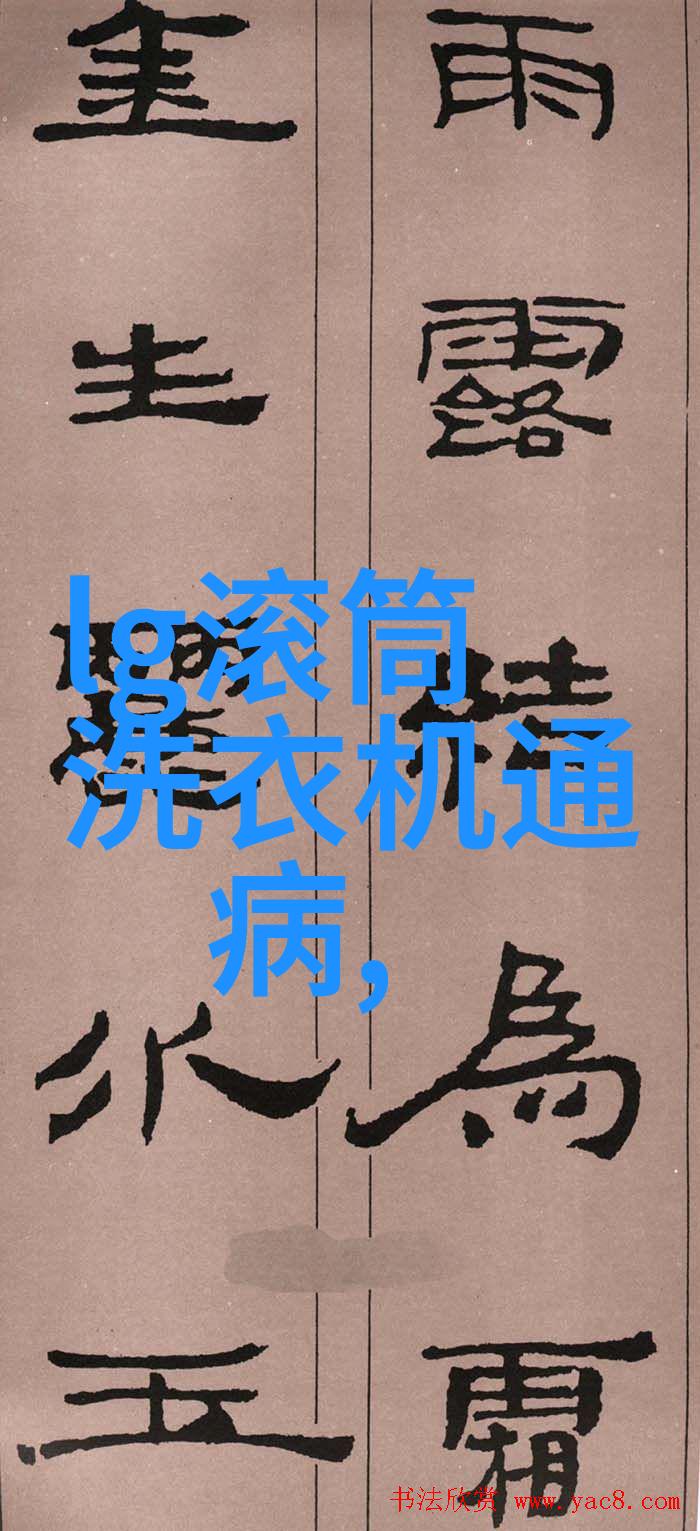 雨露結為霜
金生麗水玉
lg滚筒
洗衣机通
病,
书法欣赏 www.yac8.com